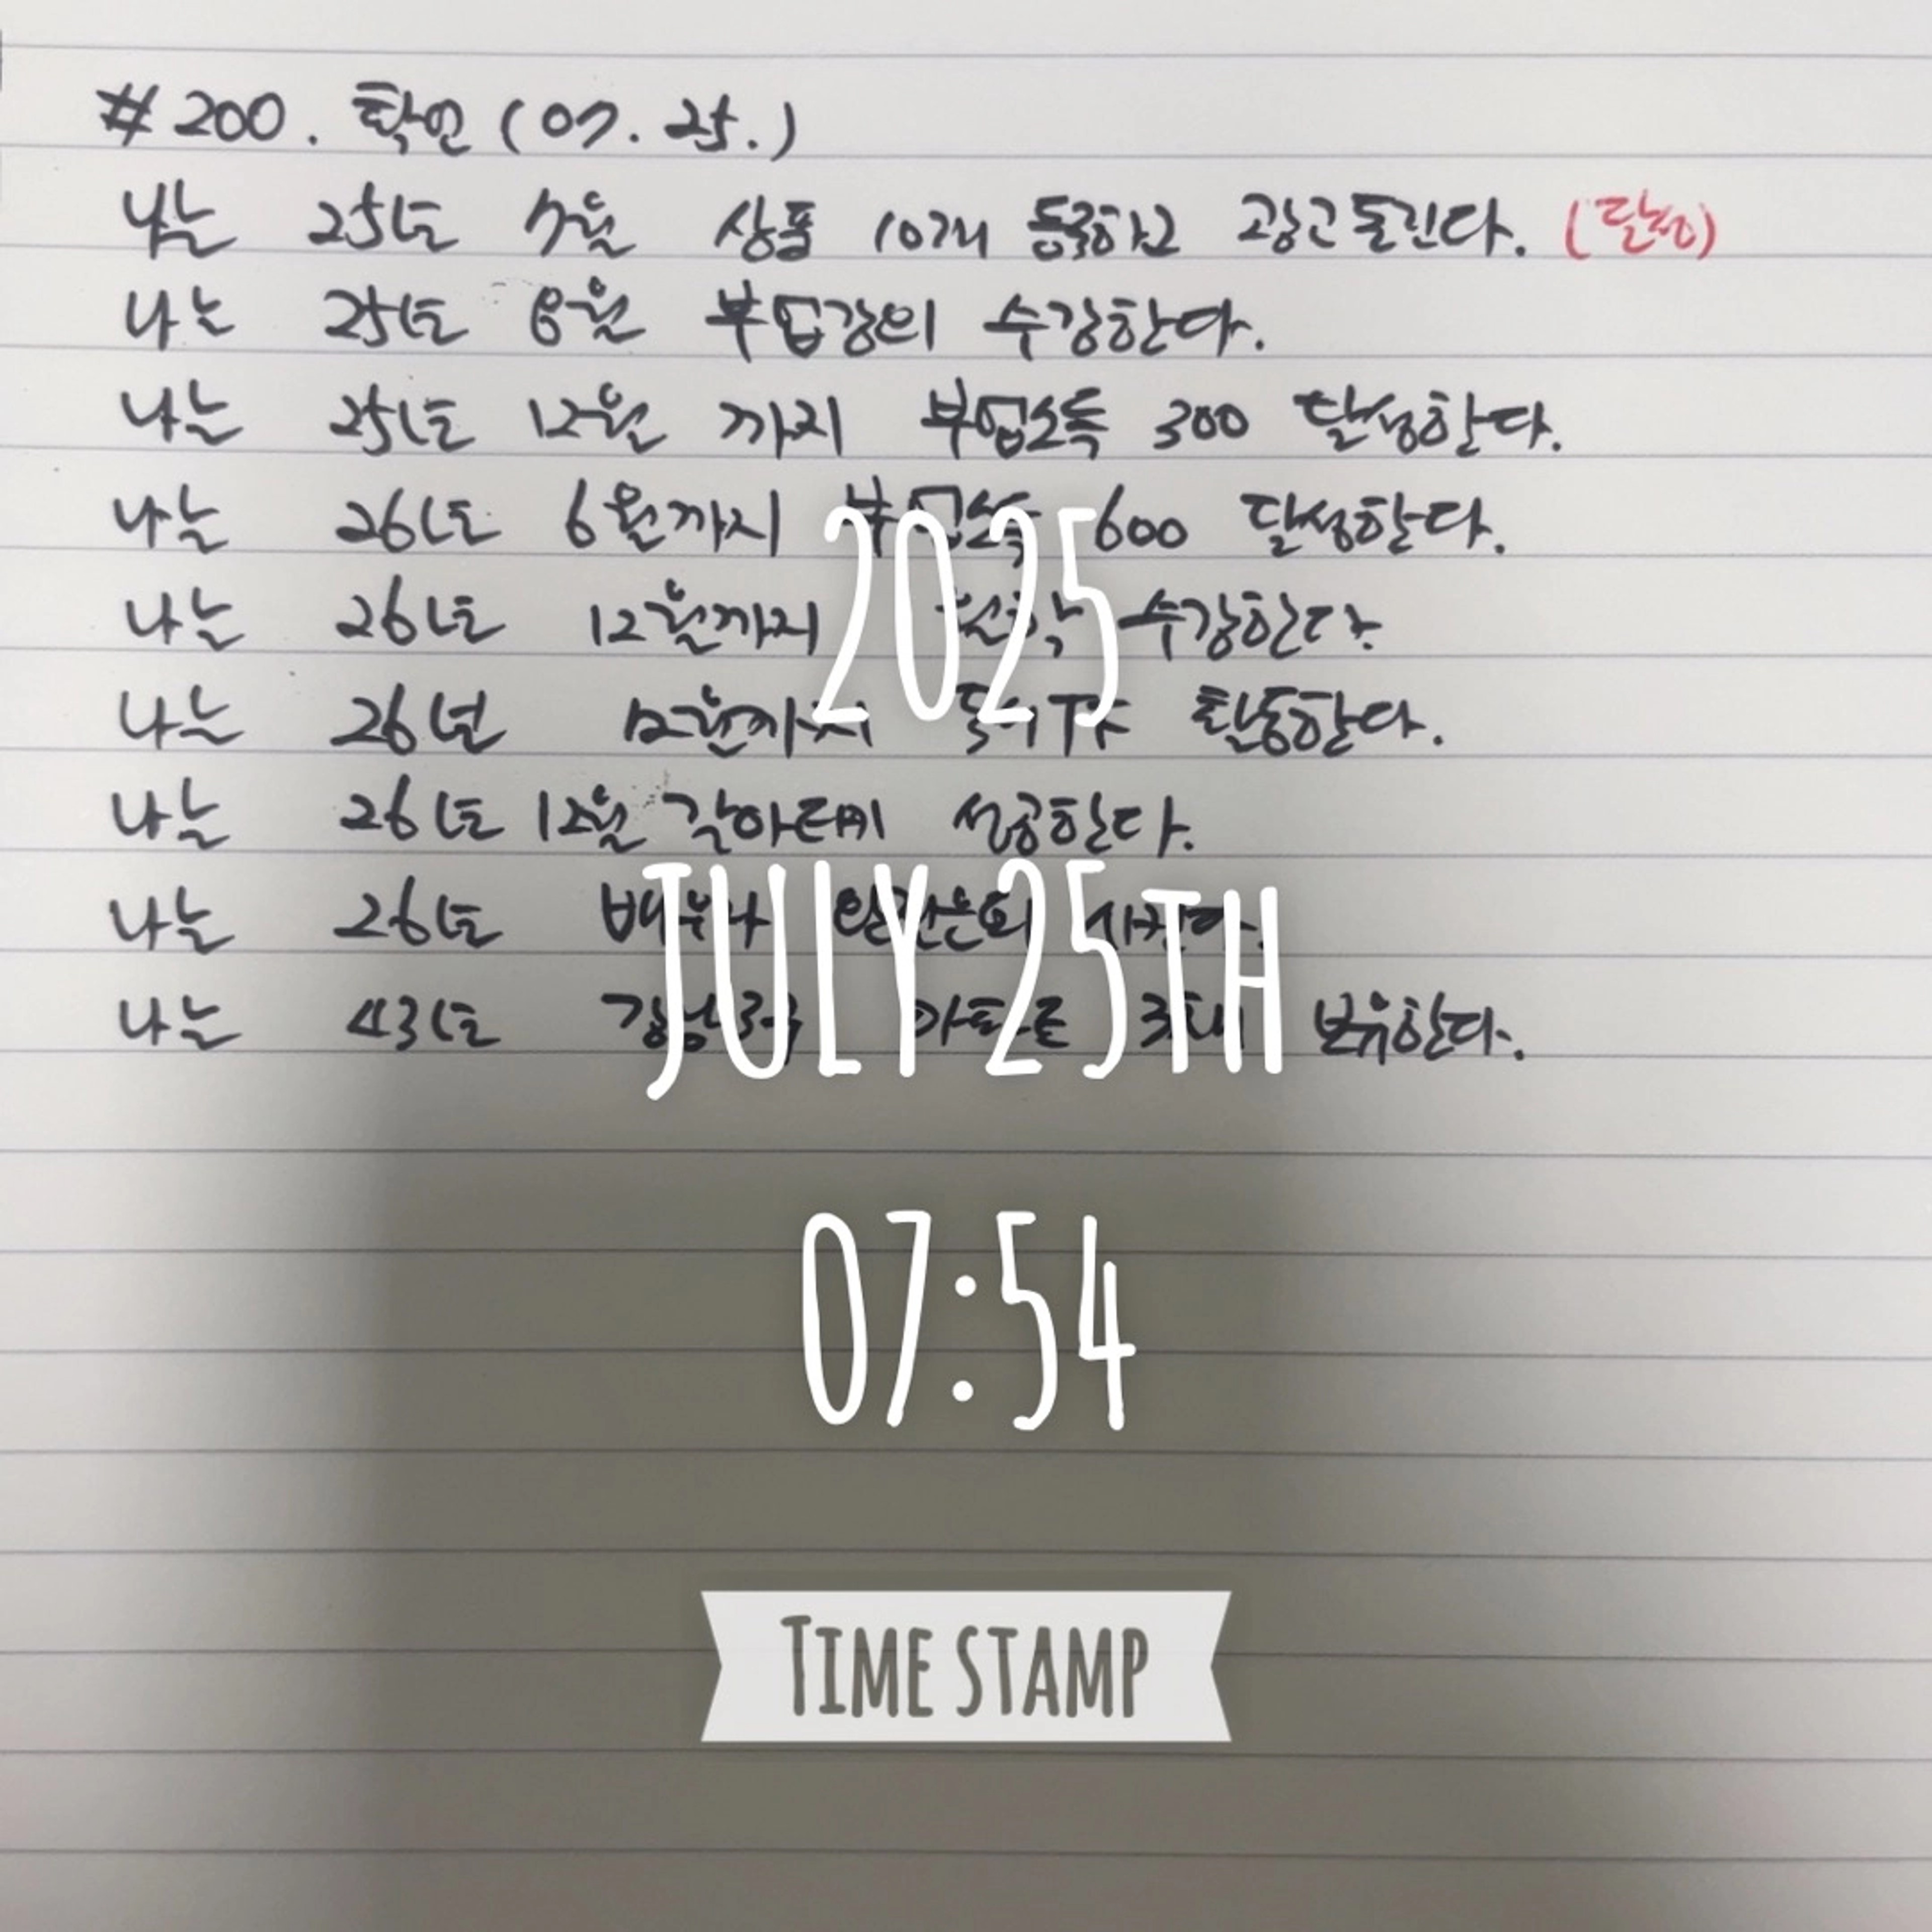 #200. 확언 (07. 25.)
나는 25년 7월 상품 10개 등록하고 광고 돌린다. (달성)
나는 25년 8월 부업강의 수강한다.
나는 25년 12월 까지 부업소득 300 달성한다.
나는 26년 6월까지 부업소득 600 달성한다.
나는 26년 12월까지 수강한다.
나는 26년 12월까지 활동한다.
나는 26년 12월 갈아타기 성공한다.
나는 26년
나는 43년 강남3구 아파트를 3채 보유한다.
2025
JULY 25TH
07:54
TIME STAMP